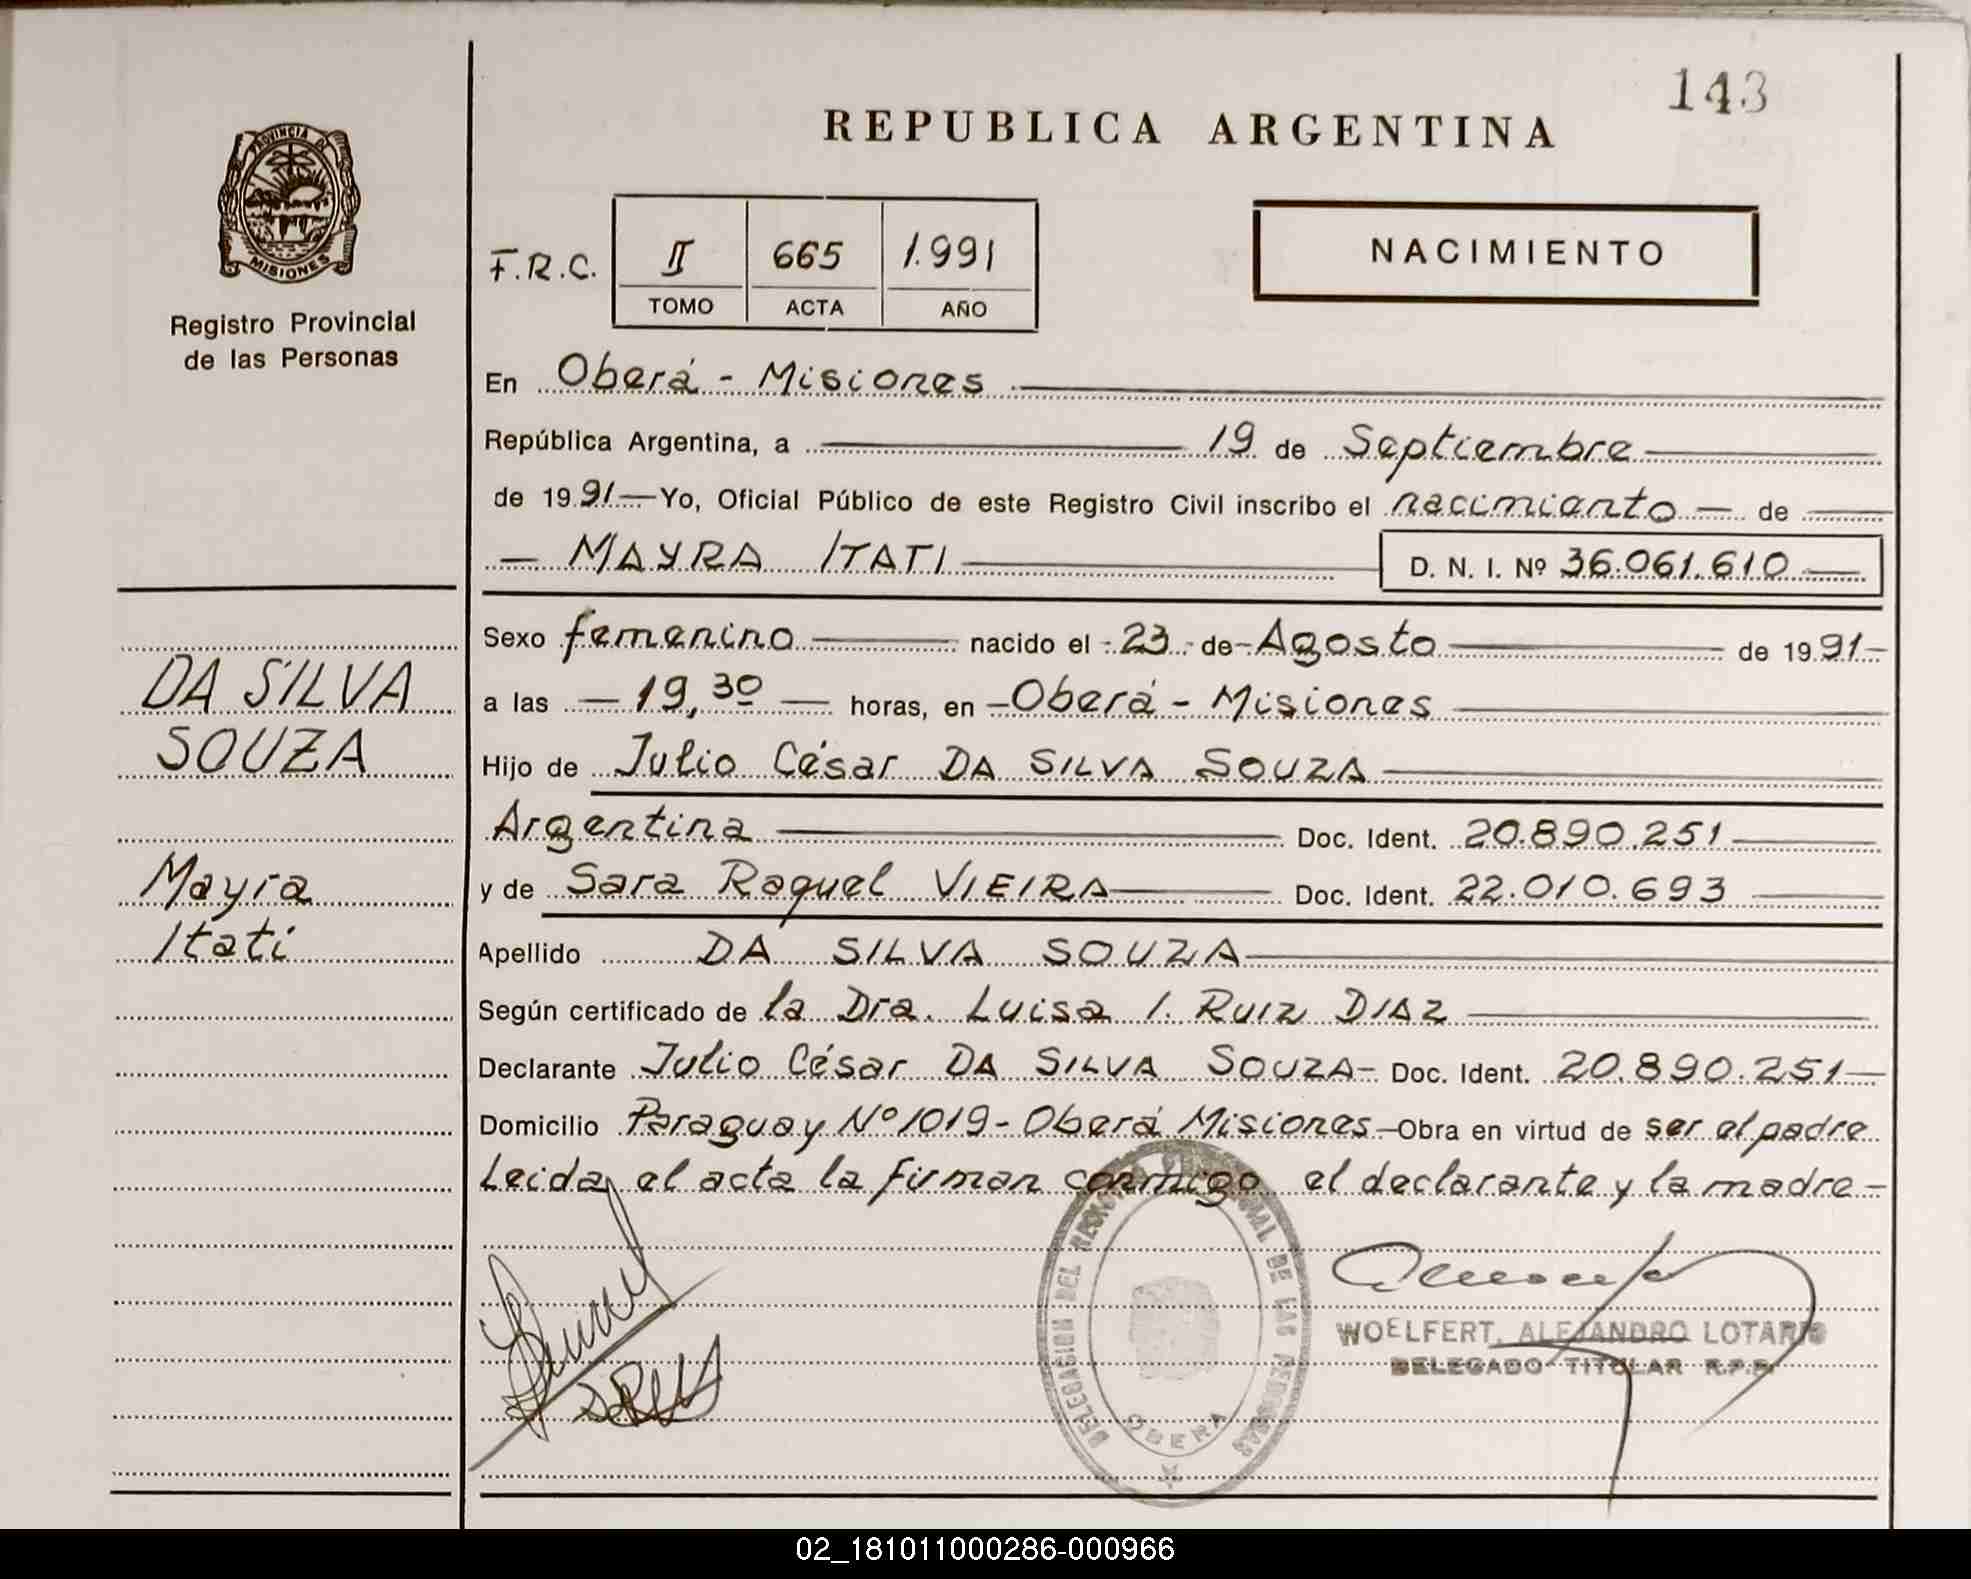 143
REPUBLICA ARGENTINA
PROVINCIA DE
MISIONES
Registro Provincial
de las Personas
NACIMIENTO
F.R.C. II 665 1.991
TOMO ACTA AÑO
En Oberá - Misiones
República Argentina, a 19 de Septiembre
de 1991 Yo, Oficial Público de este Registro Civil inscribo el nacimianto de
MAYRA ITATI D. N. I. Nº 36.061.610
Sexo femenino nacido el 23 de Agosto de 1991
a las 19,30 horas, en Oberá - Misiones
DA SILVA
SOUZA
Hijo de Julio César DA SILVA SOUZA
Argentina Doc. Ident. 20.890.251
Mayra
Itati
y de Sara Raquel VIEIRA Doc. Ident. 22.010.693
Apellido DA SILVA SOUZA
Según certificado de la Dra. Luisa I. RUIZ DIAZ
Declarante Julio César DA SILVA SOUZA - Doc. Ident. 20.890.251
Domicilio Paraguay Nº 1019 - Oberá Misiones - Obra en virtud de ser el padre
Leida el acta la firman conmigo el declarante y la madre -
DELEGACION DEL REGISTRO PROVINCIAL DE LAS PERSONAS
OBERA
WOELFERT, ALEJANDRO LOTARIO
DELEGADO TITULAR R.P.P.
02_181011000286-000966